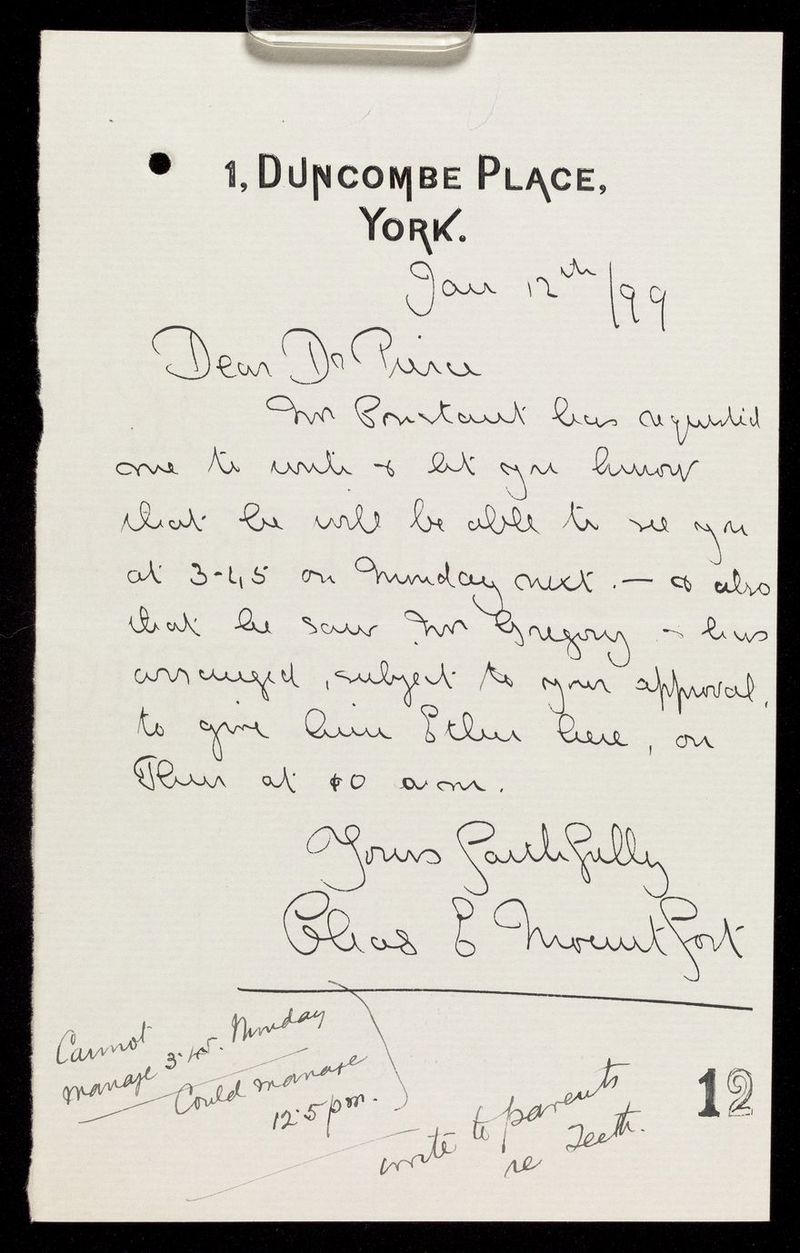 1, DUNCOMBE PLACE,
YORK.
Jan 12th/99
Dear Dr Pierce
Mr Constant has requested
me to write & let you know
that he will be able to see you
at 3-45 on Monday next. — & also
that he saw Mr Gregory & has
arranged, subject to your approval,
to give him Ether here, on
Thur at 10 a.m.
Yours faithfully
Chas E Mountfort
Cannot
manage 3.45. Monday
Could manage
12.5 pm.
write to parents
re Teeth.
12